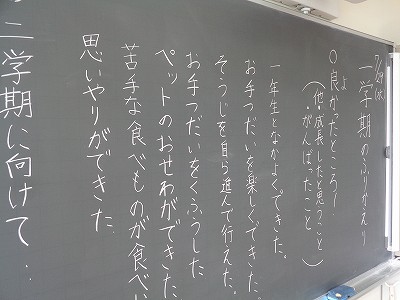 7/29(水)
一学期のふりかえり
○良かったところ
よ
(・他・成長したと思うこと
・がんばったこと)
一年生となかよくできた。
お手つだいを楽しくできた。
そうじを自ら進んで行えた。
お手つだいをくふうした
ペットのおせわができた
苦手な食べものが食べ
思いやりができた
二学期に向けて